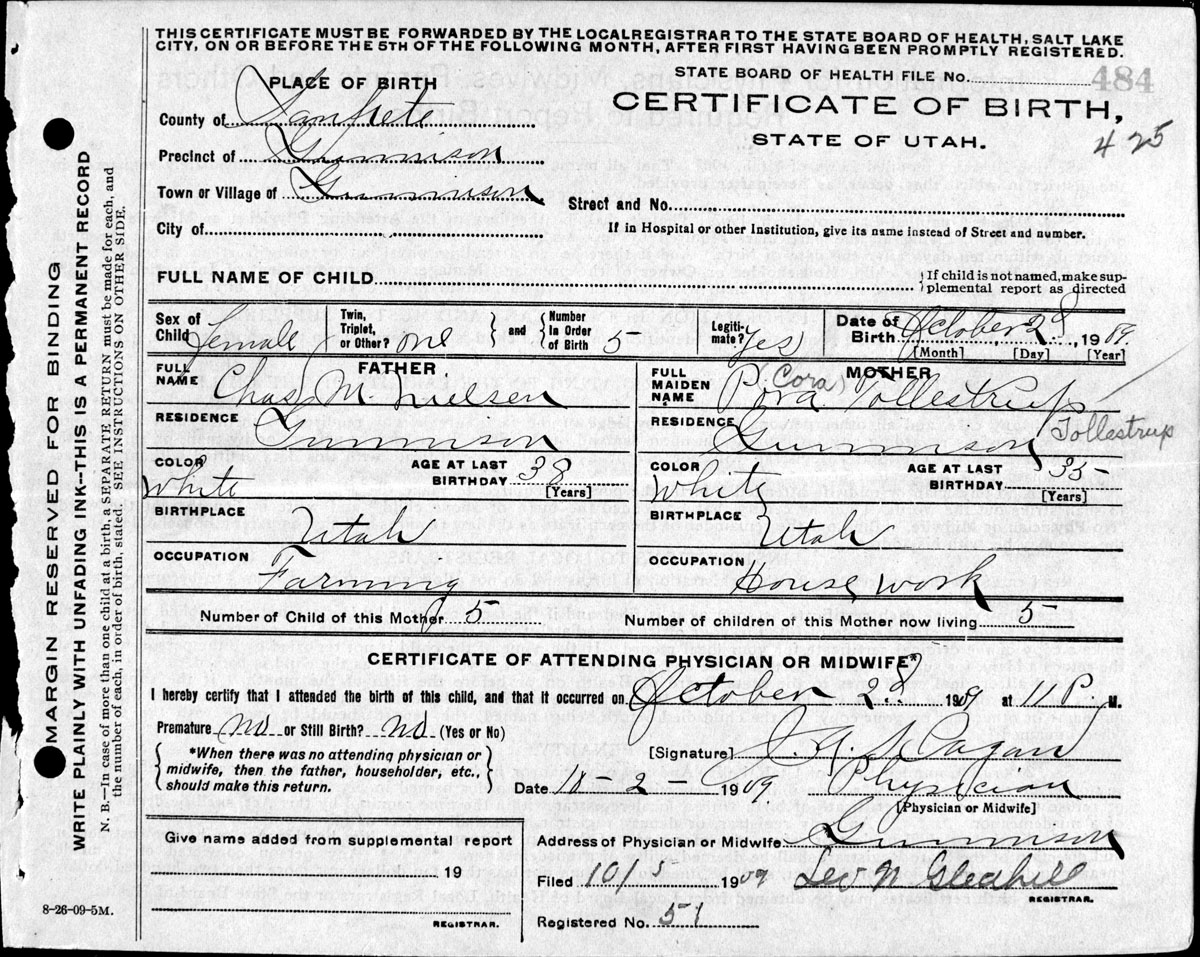 THIS CERTIFICATE MUST BE FORWARDED BY THE LOCALREGISTRAR TO THE STATE BOARD OF HEALTH, SALT LAKE
CITY, ON OR BEFORE THE 5TH OF THE FOLLOWING MONTH, AFTER FIRST HAVING BEEN PROMPTLY REGISTERED.
PLACE OF BIRTH
STATE BOARD OF HEALTH FILE No. 484
County of Sanpete
CERTIFICATE OF BIRTH,
STATE OF UTAH.
425
Precinct of Gunnison
Town or Village of Gunnison
Street and No.
City of
If in Hospital or other Institution, give its name instead of Street and number.
FULL NAME OF CHILD
{If child is not named, make sup-
plemental report as directed
Sex of Child Female
Twin, Triplet, or Other? one } and { Number In Order of Birth 5
Legiti- mate? Yes
Date of Birth October 2d, 1909.
[Month] [Day] [Year]
FATHER
FULL NAME Chas M. Nielsen
RESIDENCE Gunnison
COLOR White
AGE AT LAST BIRTHDAY 38
[Years]
BIRTHPLACE Utah
OCCUPATION Farming
MOTHER
FULL MAIDEN NAME (Cora) Tollestrup
RESIDENCE Gunnison
Tollestrup
COLOR White
AGE AT LAST BIRTHDAY 35
[Years]
BIRTHPLACE Utah
OCCUPATION House work
Number of Child of this Mother 5
Number of children of this Mother now living 5
CERTIFICATE OF ATTENDING PHYSICIAN OR MIDWIFE*
I hereby certify that I attended the birth of this child, and that it occurred on October 2d 1909 at 11 P. M.
Premature No or Still Birth? No (Yes or No)
{ *When there was no attending physician or
midwife, then the father, householder, etc.,
should make this return. }
[Signature] Hagan
Date 10-2- 1909
Physician
[Physician or Midwife]
Give name added from supplemental report
19
REGISTRAR.
Address of Physician or Midwife Gunnison
Filed 10/ 1909 Leo N Gledhill
REGISTRAR.
Registered No. 51
8-26-09-5M.
MARGIN RESERVED FOR BINDING
WRITE PLAINLY WITH UNFADING INK--THIS IS A PERMANENT RECORD
N. B.—In case of more than one child at a birth, a SEPARATE RETURN must be made for each, and
the number of each, in order of birth, stated. SEE INSTRUCTIONS ON OTHER SIDE.